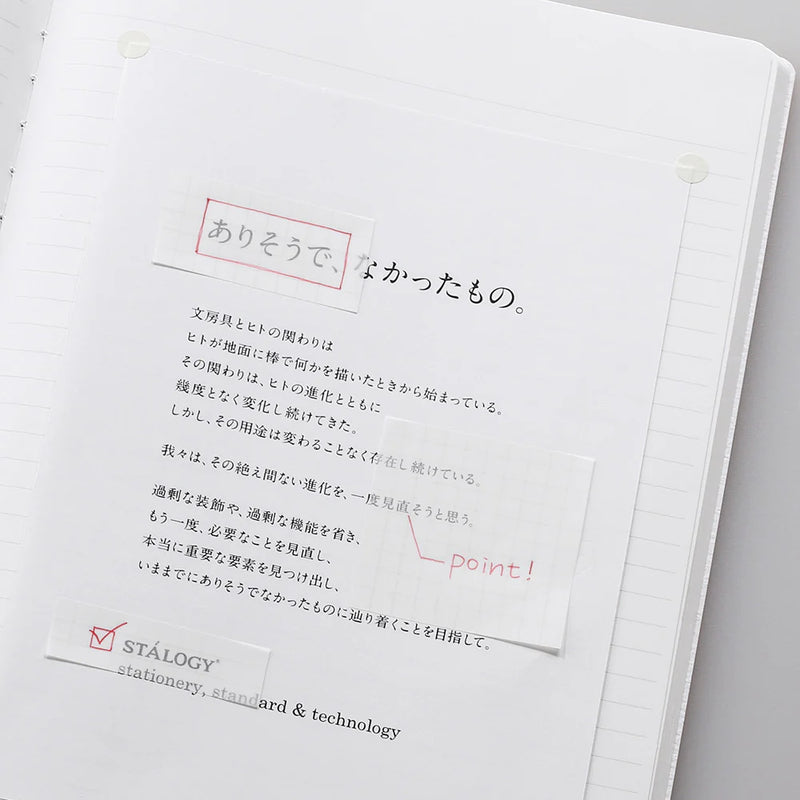 ありそうで、なかったもの。
文房具とヒトの関わりは
ヒトが地面に棒で何かを描いたときから始まっている。
その関わりは、ヒトの進化とともに
幾度となく変化し続けてきた。
しかし、その用途は変わることなく存在し続けている。
我々は、その絶え間ない進化を、一度見直そうと思う。
過剰な装飾や、過剰な機能を省き、
もう一度、必要なことを見直し、
本当に重要な要素を見つけ出し、
いままでにありそうでなかったものに辿り着くことを目指して。
point!
STÁLOGY®
stationery, standard & technology